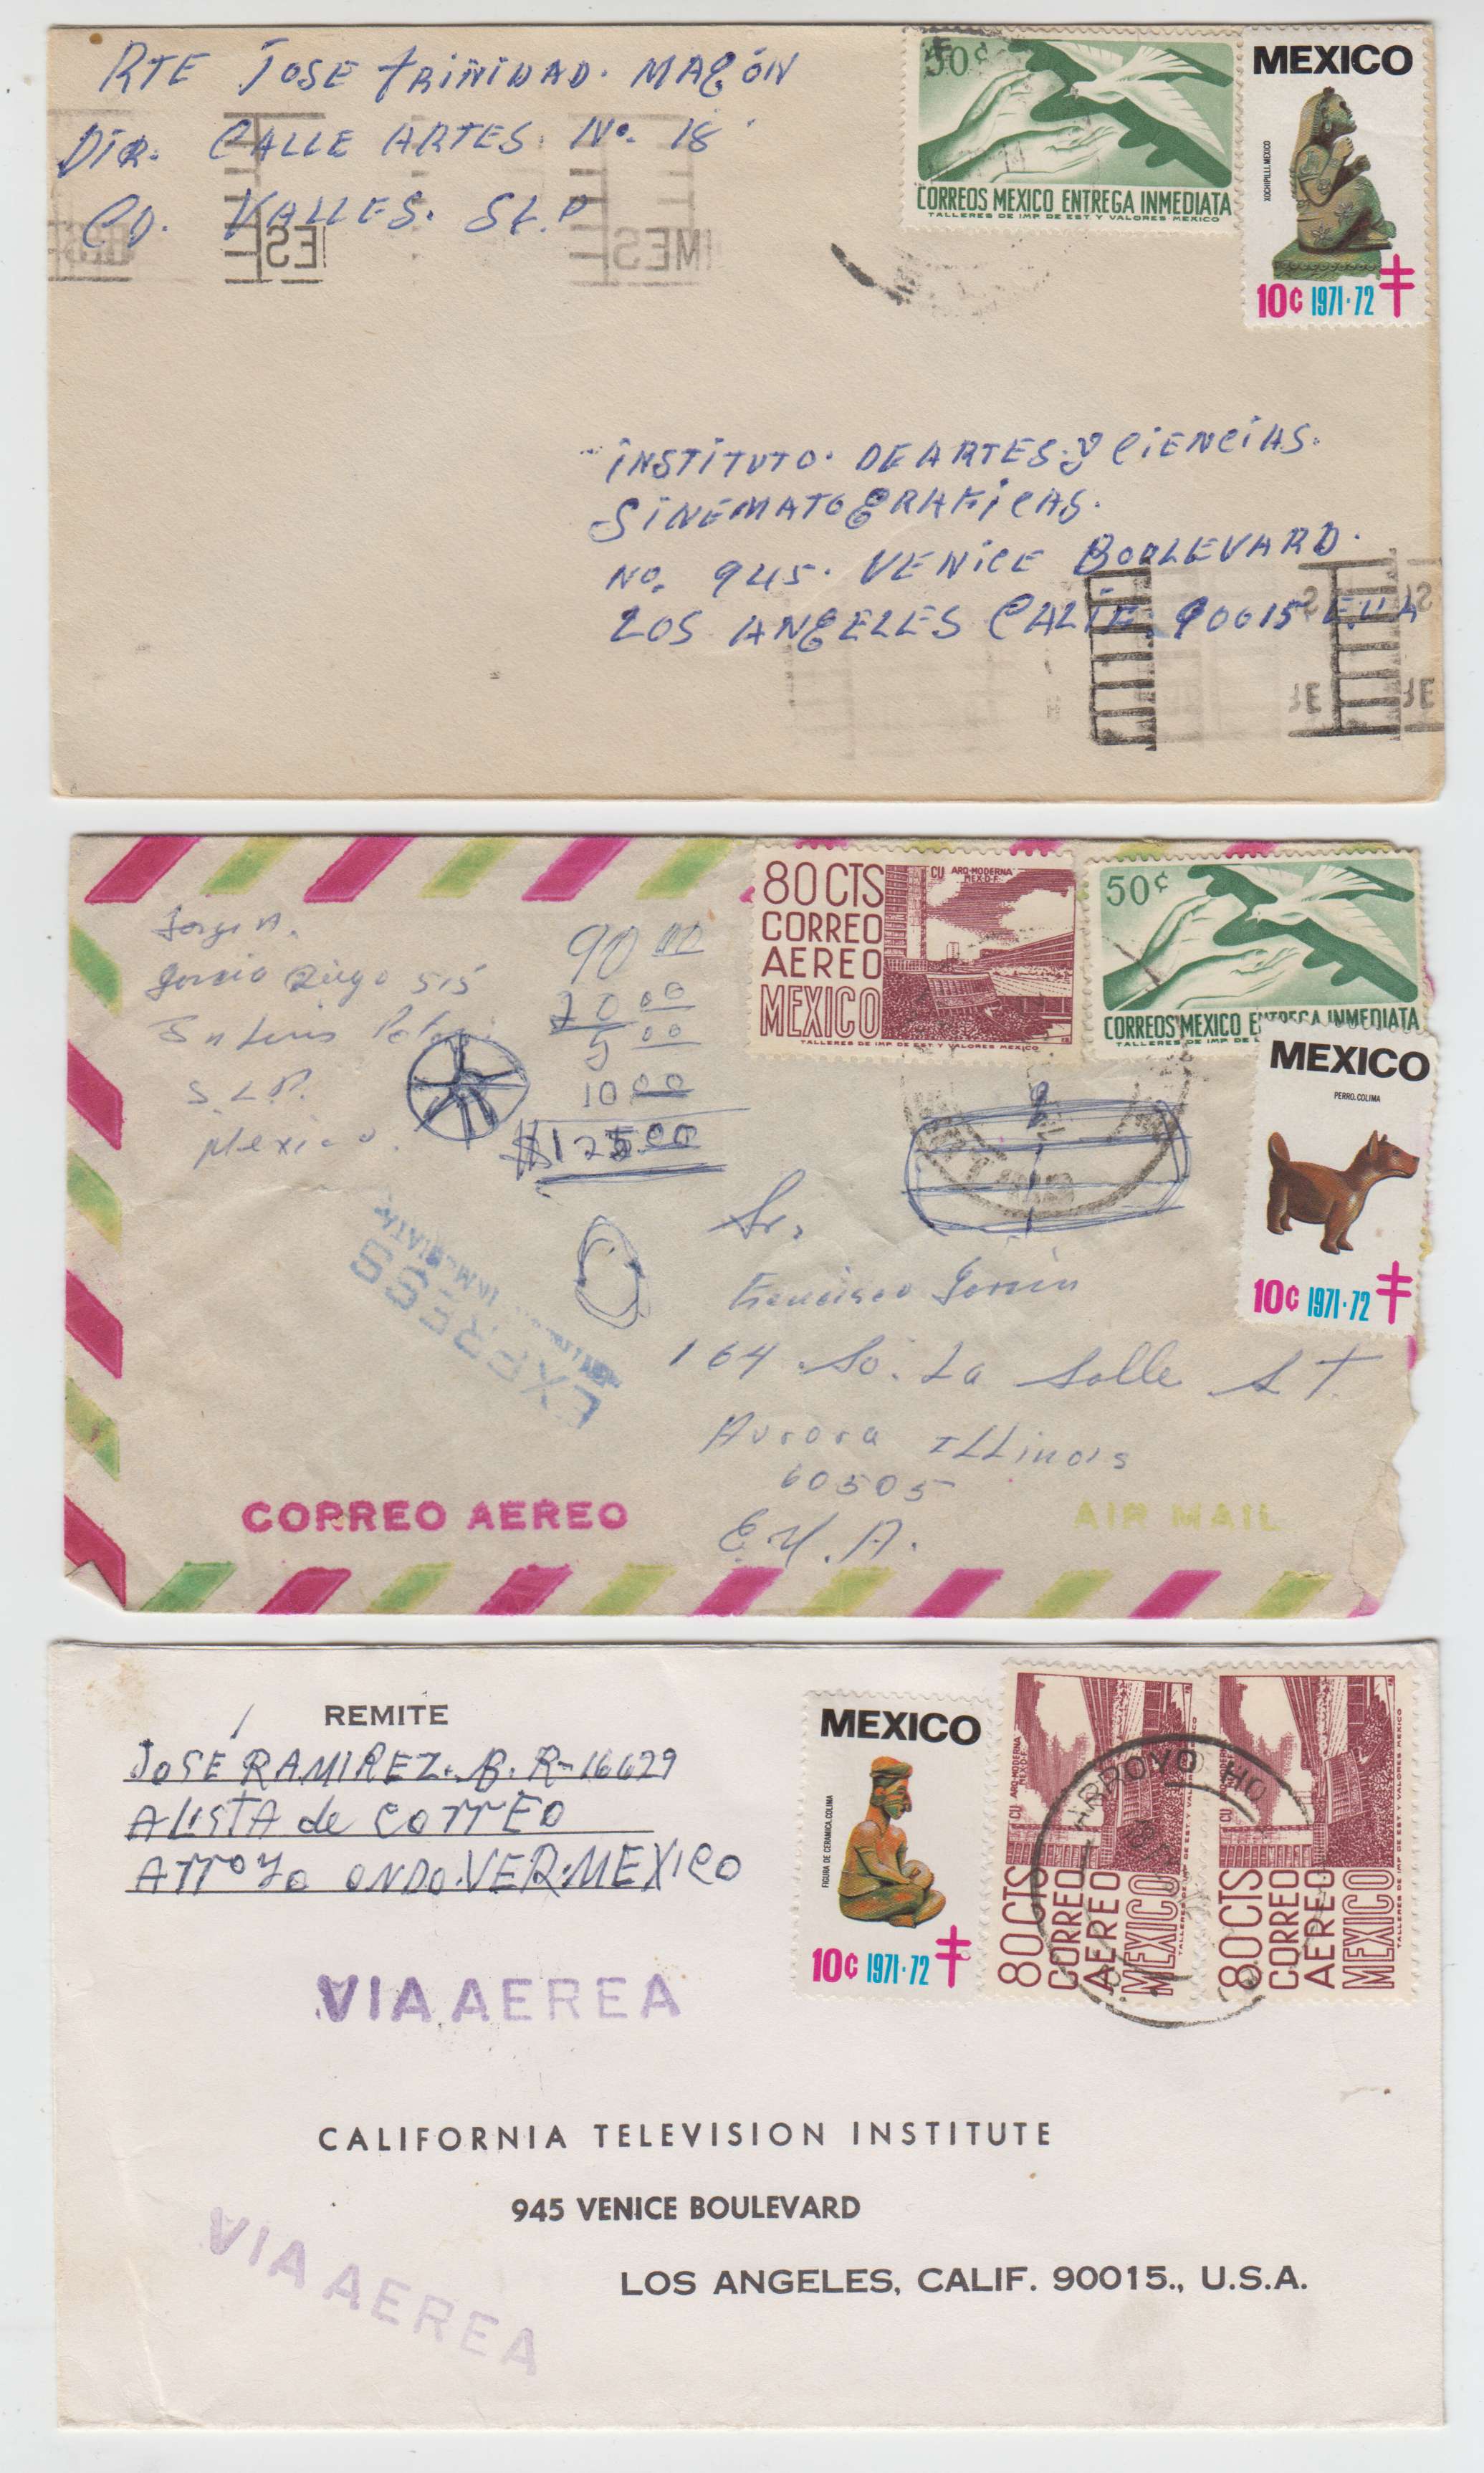 RTE JOSE TRINIDAD. MAGÓN
DIR. CALLE ARTES. No. 18
CD. VALLES. SLP
50¢
CORREOS MEXICO ENTREGA INMEDIATA
TALLERES DE IMP. DE EST. Y VALORES MEXICO
MEXICO
XOCHIPILLI.MEXICO
10¢ 1971·72
INSTITUTO. DE ARTES. Y CIENCIAS.
SINEMATOGRAFICAS.
No. 945. VENICE BOULEVARD.
LOS ANGELES CALIF. 90015 E.U.A
80 CTS
CORREO
AEREO
MEXICO
CU ARQ·MODERNA
MEX·D·F·
TALLERES DE IMP. DE EST. Y VALORES MEXICO
50¢
CORREOS MEXICO ENTREGA INMEDIATA
TALLERES DE IMP DE
MEXICO
PERRO.COLIMA
10¢ 1971·72
Jorge A.
García Diego 515
Sn Luis Potosí
S.L.P.
Mexico.
90 00
20 00
5 00
10 00
$125.00
EXPRESS
Sr.
Francisco
164 So. La Salle ST.
Aurora ILLinois
60505
E.U.A.
CORREO AEREO
AIR MAIL
REMITE
JOSÉ RAMIREZ. B. R-16629
ALISTA de COrrEO
Arroyo ONDO.VER.MEXICO
MEXICO
FIGURA DE CERAMICA.COLIMA
10¢ 1971·72
80 CTS
CORREO
AEREO
MEXICO
CU ARQ·MODERNA
TALLERES DE IMP DE EST Y VALORES MEXICO
80 CTS
CORREO
AEREO
MEXICO
TALLERES DE IMP DE EST Y VALORES MEXICO
ARROYO HO
VIA AEREA
CALIFORNIA TELEVISION INSTITUTE
945 VENICE BOULEVARD
LOS ANGELES, CALIF. 90015., U.S.A.
VIA AEREA